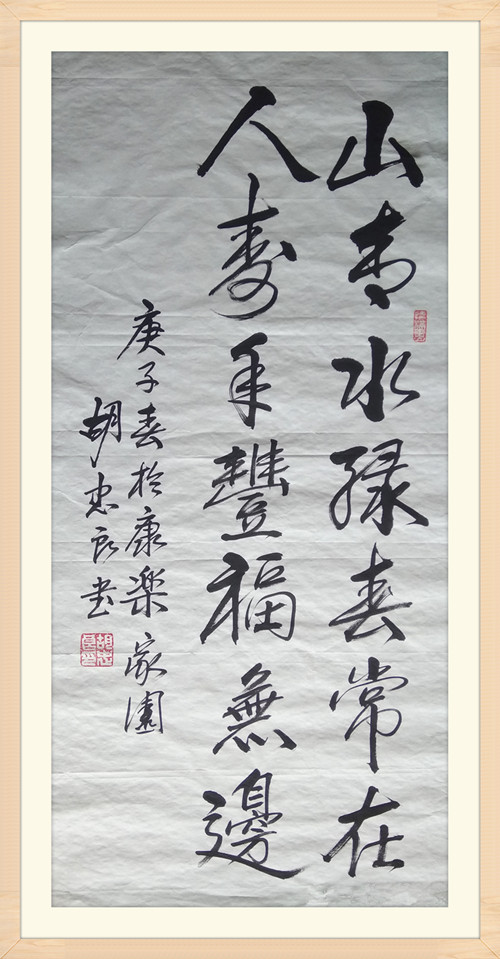 山青水绿春常在
人寿年豐福無邊
庚子春於康楽家園
胡忠良书
胡忠良印